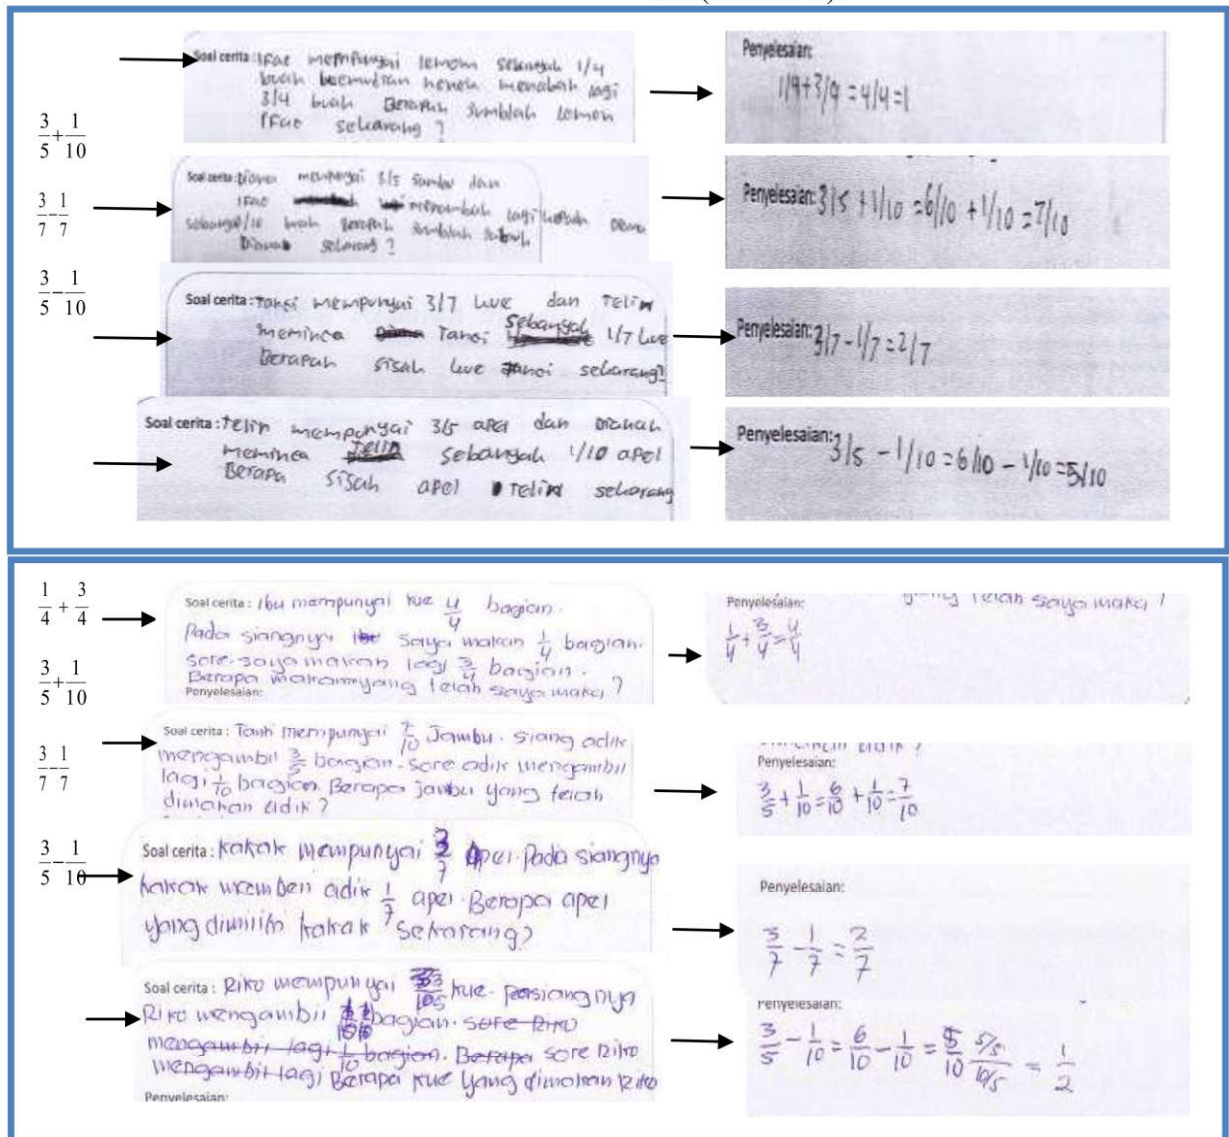 3/5 + 1/10
3/7 - 1/7
3/5 - 1/10
Soal cerita : IFae mempunyai lemom sebanyak 1/4
buah kemudian nenek menabah lagi
3/4 buah Berapah Jumblah lemon
IFae sekarang ?
Penyelesaian:
1/4+3/4 = 4/4=1
Soal cerita: Diana mempunyai 3/5 dan
IFae menambah lagi kepada Diana
sebanyak 1/10 buah Berapah Jumblah
Dianah sekarang ?
Penyelesaian: 3/5 + 1/10 = 6/10 + 1/10 = 7/10
Soal cerita : Tansi mempunyai 3/7 kue dan Telin
meminta Tansi sebanyak 1/7 kue
Berapah sisah kue Tansi sekarang?
Penyelesaian: 3/7 - 1/7 = 2/7
Soal cerita : Telin mempunyai 3/5 apel dan Dianah
meminta Telin sebanyak 1/10 apel
Berapa sisah apel Telin sekarang
Penyelesaian: 3/5 - 1/10 = 6/10 - 1/10 = 5/10
1/4 + 3/4
3/5 + 1/10
3/7 - 1/7
3/5 - 1/10
Soal cerita : Ibu mempunyai kue 4/4 bagian.
Pada siangnya saya makan 1/4 bagian.
sore saya makan lagi 3/4 bagian.
Berapa makannyang telah saya maka ?
Penyelesaian:
yang telah saya maka ?
Penyelesaian:
1/4 + 3/4 = 4/4
Soal cerita : Tanti mempunyai 7/10 Jambu. siang adik
mengambil 3/5 bagian. sore adik mengambil
lagi 1/10 bagian. Berapa jambu yang telah
dimakan adik ?
Penyelesaian:
3/5 + 1/10 = 6/10 + 1/10 = 7/10
Soal cerita : kakak mempunyai 3/7 Apel. Pada siangnya
kakak memberi adik 1/7 apel. Berapa apel
yang dimiliki kakak sekarang?
Penyelesaian:
3/7 - 1/7 = 2/7
Soal cerita : Riko mempunyai 3/5 kue. persiangnya
Riko mengambil 1/10 bagian. sore Riko
mengambil lagi 1/10 bagian. Berapa sore Riko
mengambil lagi Berapa kue yang dimakan Riko
Penyelesaian:
Penyelesaian:
3/5 - 1/10 = 6/10 - 1/10 = 5/10 5/5 / 10/5 = 1/2